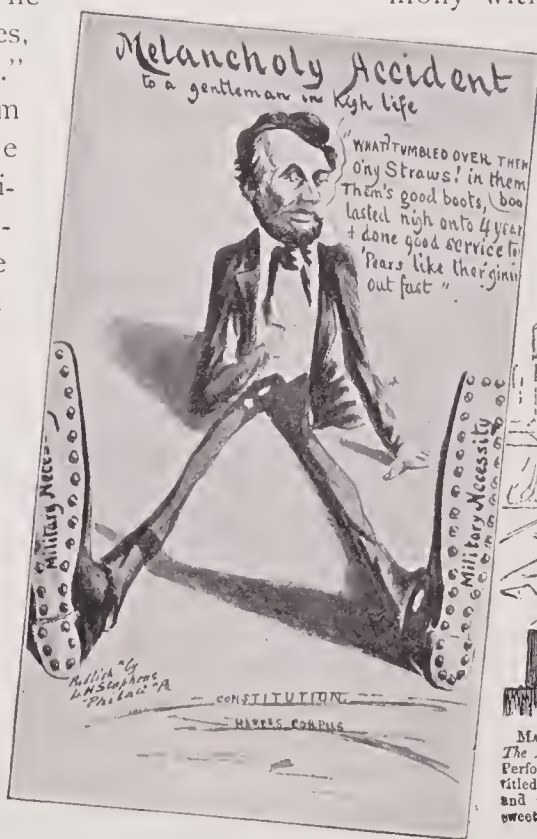 mony with
es,
."
m
e
i-
-
e
Melancholy Accident
to a gentleman in high life
"WHAT! TUMBLED OVER THEM
O'ny Straws! in them
Them's good boots, (boo
lasted nigh onto 4 year
+ done good service to
'Pears like ther ginin
out fast".
Military Neces
Military Necessity
Publish'd by
Philad'a P
CONSTITUTION
HABBES CORPUS
MA
The
Perfo
titled
and
sweet